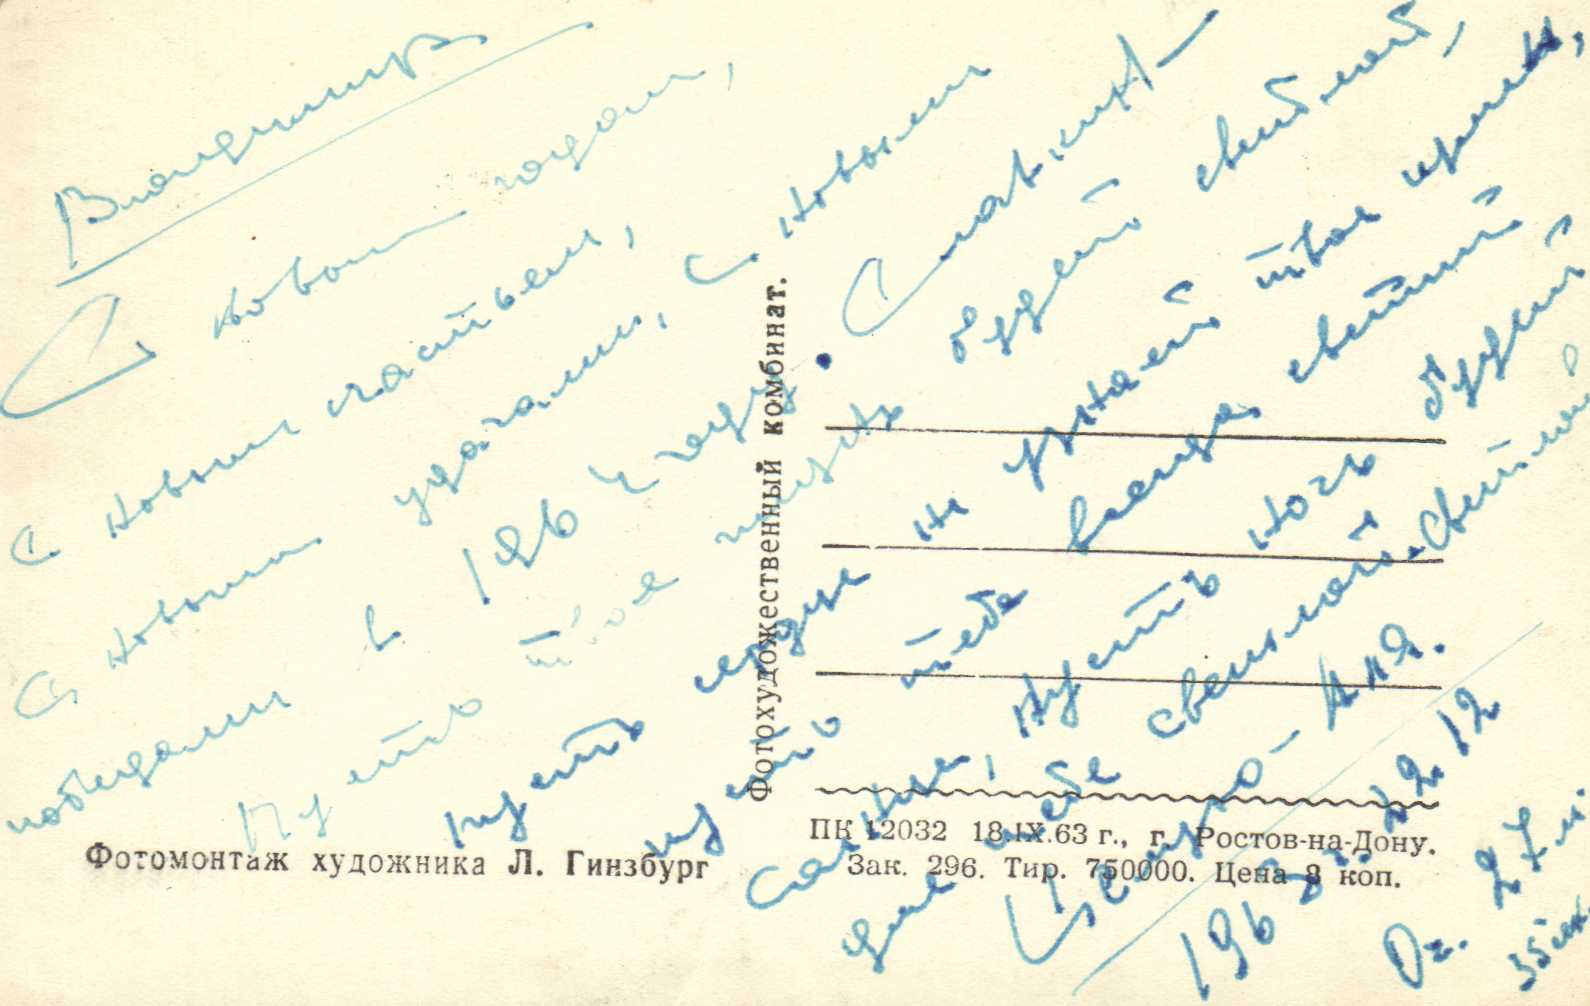 С новым годом,
с новым счастьем,
С новыми удачами, с новыми
победами в 1964 году. Славик!
Пусть твоя жизнь будет светлой,
пусть сердце не узнает твое
пусть тебе всегда светит
солнце, пусть ночь будет
для тебя светлой-светлой
Целую - Аля.
1963 г. 22.12
Фотохудожественный комбинат.
Фотомонтаж художника Л. Гинзбург
ПК 12032 18.IX.63 г., г. Ростов-на-Дону.
Зак. 296. Тир. 750000. Цена 8 коп.